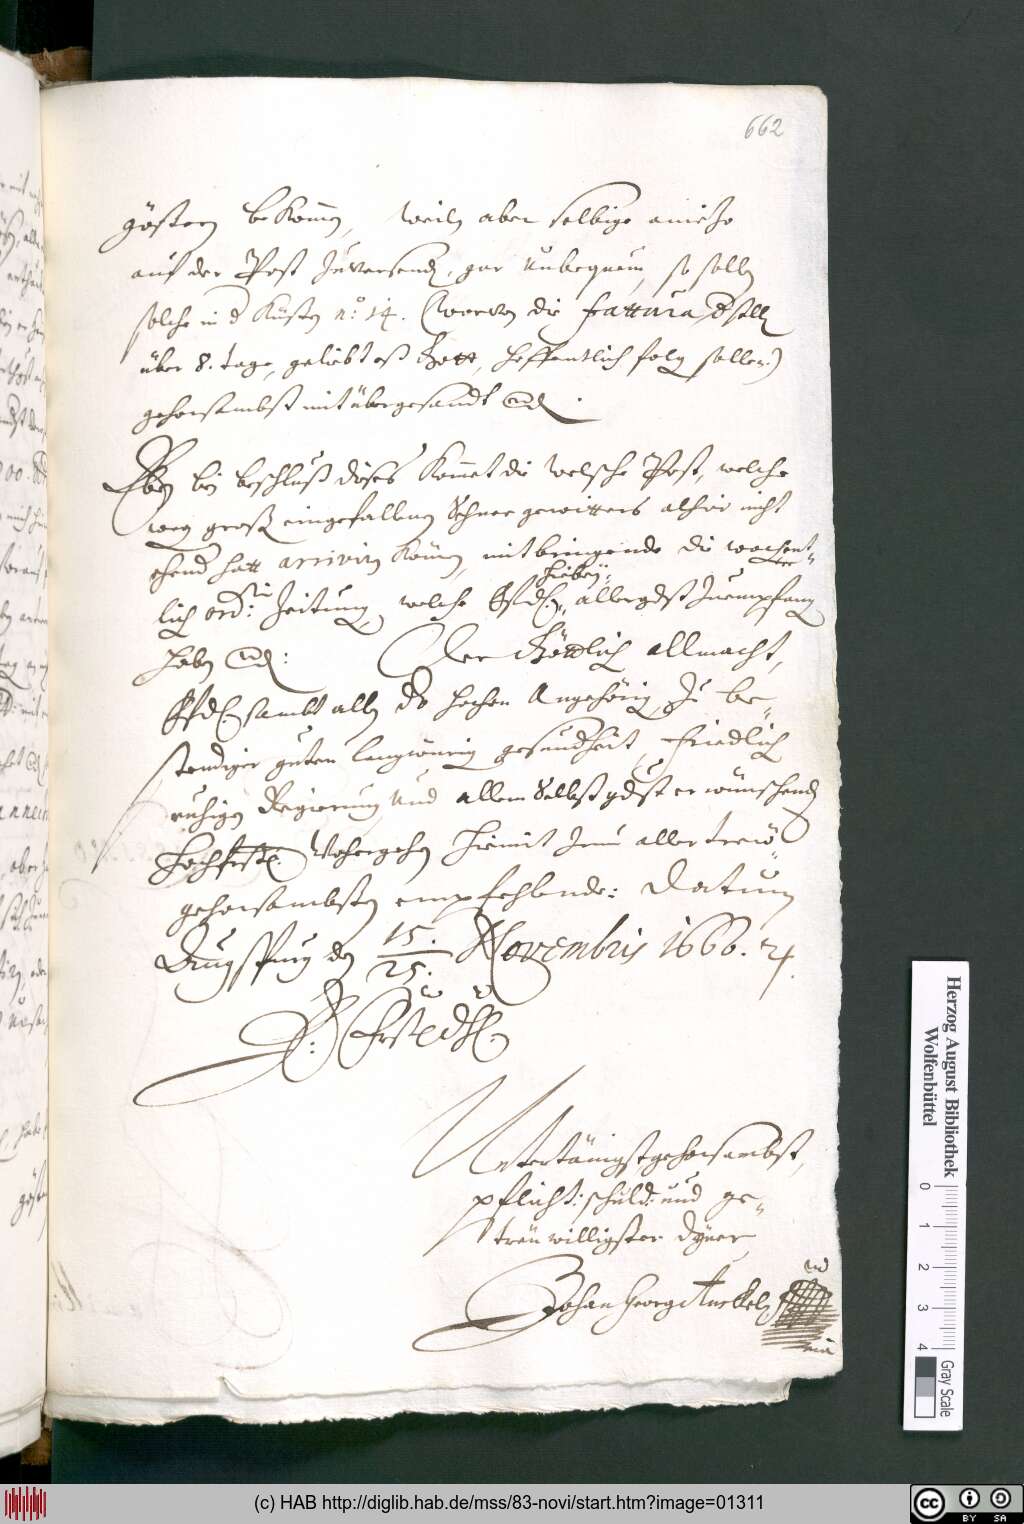 662
gösten bekommen, weiln aber selbige anietzo
auf der Post zuversenden, gar unbequem, so sollen
solche in d Kisten n.o 14. (worvon die frattura,
über 8. tage, geliebt es Gott, hoffentlich folgen sollen.)
gehorsambst mit übergesandt
Eben bei beschluß dises kommet die welsche Post, welche
wegen groß eingefallenen Schneegewitters alhier nicht
ehend hatt arrivirn können, mitbringende die wochent-
lich ord: Zeitung, welche hiebey allergdst zu empfang
haben
Der Göttlich allmacht,
sambt allen dero hochen Angehörigen, zu be-
stendiger guten langwirig gesundheit, friedlich
ruhigen Regierung und allem Selbst gdst erwünschenden
hochfürstl. Wohergehen hiemit zum aller trew-
gehorsambsten empfehlende: Datum
Augspurg den 15./25. Novembris 1666.
E:
Untertänigst, gehorsambst,
pflicht: schuld: und ge-
treu willigster dyner
Johan Georg Anckel
mia
Herzog August Bibliothek
Wolfenbüttel
0 1 2 3 4
Gray Scale
(c) HAB http://diglib.hab.de/mss/83-novi/start.htm?image=01311
cc BY SA